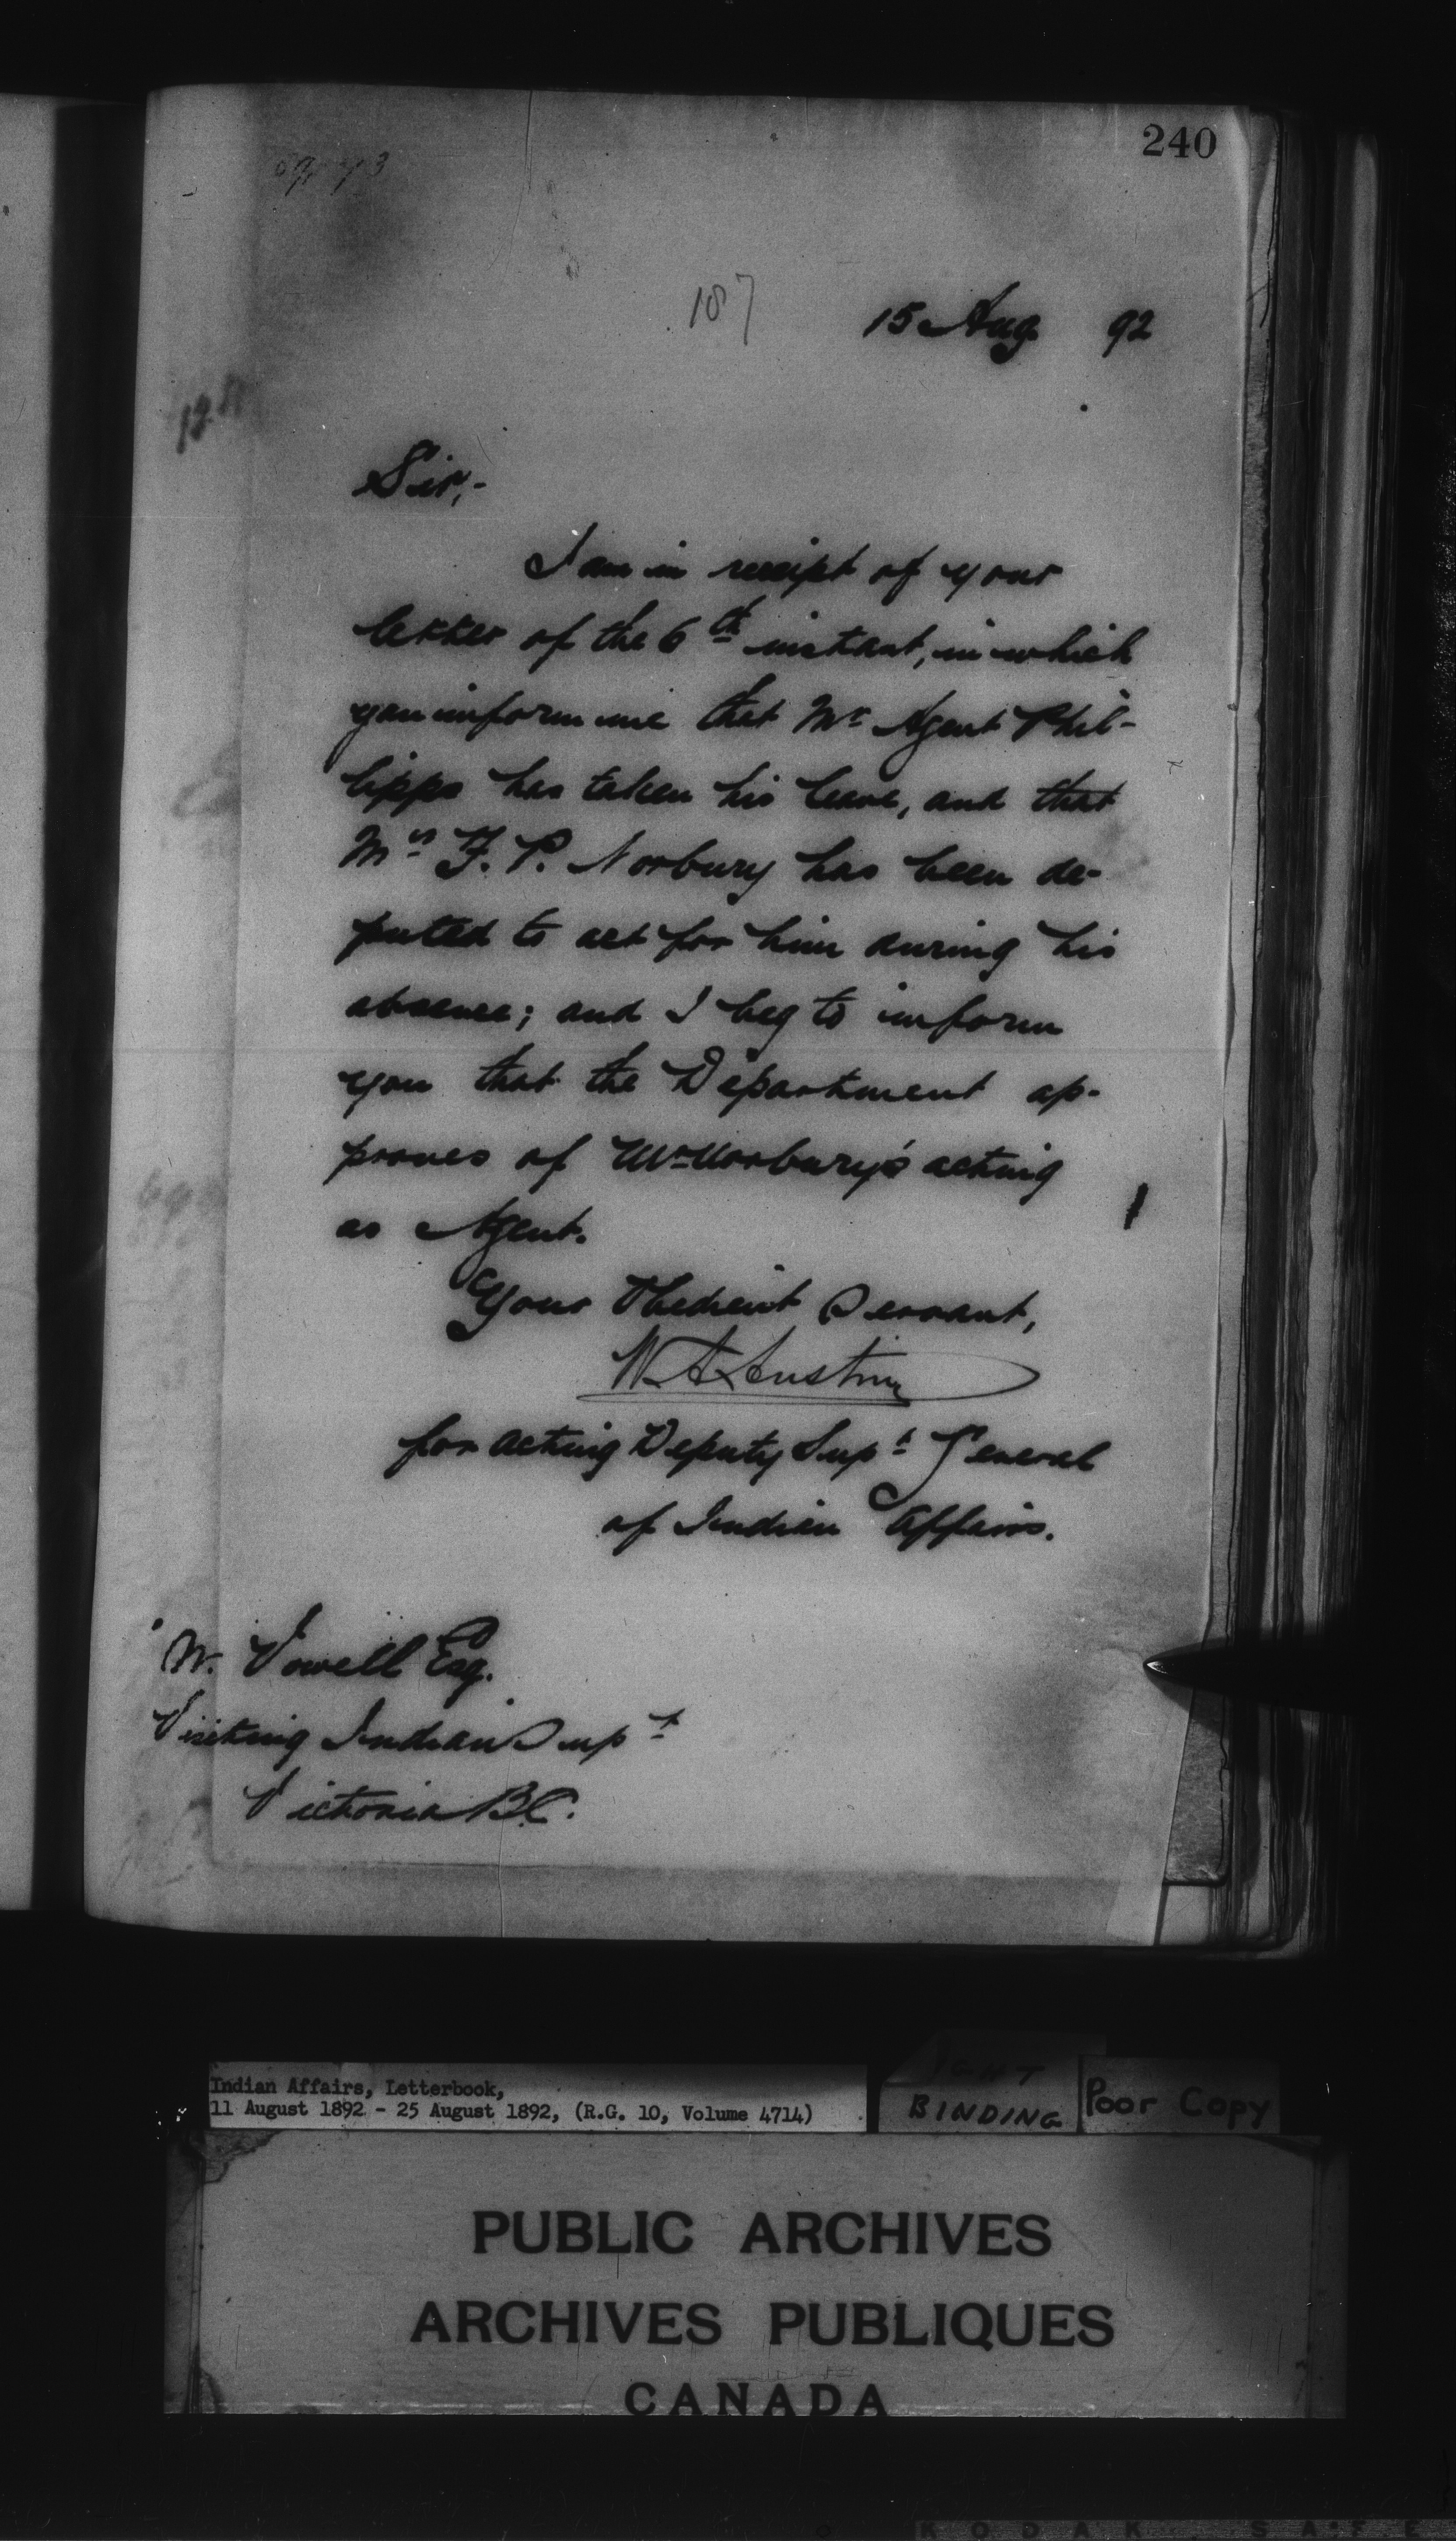 240
187
15 Aug 92
Sir,-
I am in receipt of your
letter of the 6th instant, in which
you inform me that Mr Agent Phil-
lipps has taken his leave, and that
Mr F. P. Norbury has been de-
puted to act for him during his
absence; and I beg to inform
you that the Department ap-
proves of Mr Norbury's acting
as Agent.
Your Obedient Servant,
W A Austin
for acting Deputy Supt General
of Indian Affairs.
W. Vowell Esq.
Visiting Indian Supt
Victoria B.C.
Indian Affairs, Letterbook,
11 August 1892 - 25 August 1892, (R.G. 10, Volume 4714)
BINDING
Poor Copy
PUBLIC ARCHIVES
ARCHIVES PUBLIQUES
CANADA
KODAK SAFE